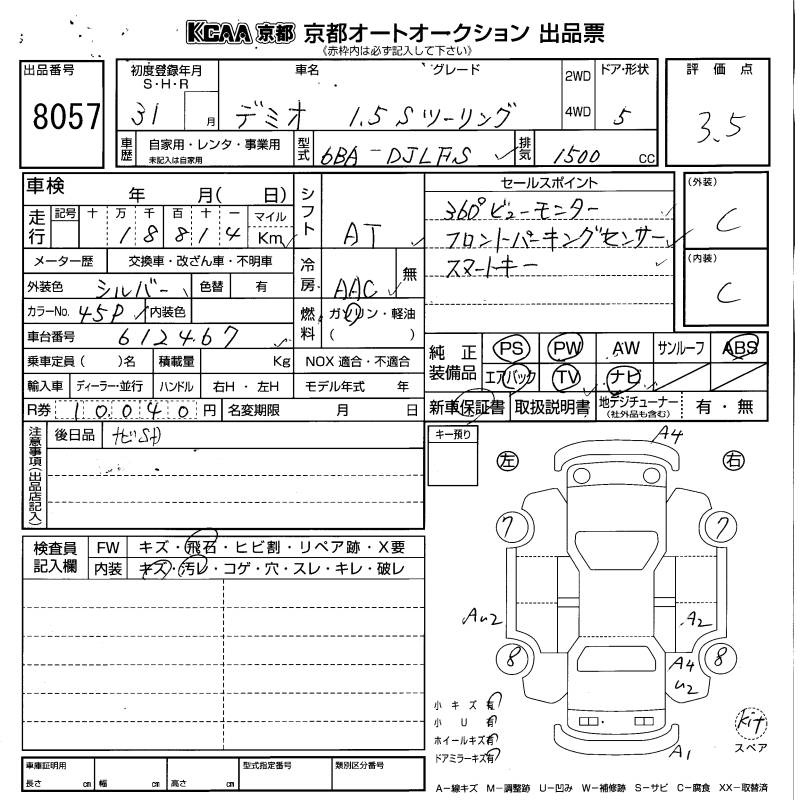 KCAA 京都 京都オートオークション 出品票
《赤枠内は必ず記入して下さい》
出品番号
8057
初度登録年月
S・H・R
31 月
車名
デミオ
グレード
1.5 S ツーリング
2WD
4WD
ドア・形状
5
評価点
3.5
車歴
自家用・レンタ・事業用
未記入は自家用
型式
6BA-DJLFS
排気
1500 cc
車検
年 月( 日)
シフト
AT
セールスポイント
360°ビューモニター
フロントパーキングセンサー
スマートキー
(外装)
C
(内装)
C
走行
記号 十 万 千 百 十 一 マイル
1 8 8 1 4 Km
メーター歴 交換車・改ざん車・不明車
冷房
AAC
無
外装色 シルバー 色替 有
カラーNo. 45P 内装色
燃料
ガソリン・軽油
( )
車台番号 612467
乗車定員( )名 積載量 Kg NOX 適合・不適合
輸入車 ディーラー・並行 ハンドル 右H・左H モデル年式 年
R券 10,040 円 名変期限 月 日
純正装備品
PS PW AW サンルーフ ABS
エアバック TV ナビ
新車保証書 取扱説明書 地デジチューナー 有・無
(社外品も含む)
注意事項(出品店記入)
後日品 ナビSD
キー預り
左 右
A4
7 7
Au2 A2
8 8
A4
u2
A1
検査員記入欄
FW キズ・飛石・ヒビ割・リペア跡・X要
内装 キズ・汚レ・コゲ・穴・スレ・キレ・破レ
小キズ有
小 U 有
ホイールキズ有
ドアミラーキズ有
kit
スペア
車庫証明用
長さ cm 幅 cm 高さ cm
型式指定番号
類別区分番号
A−線キズ M−調整跡 U−凹み W−補修跡 S−サビ C−腐食 XX−取替済